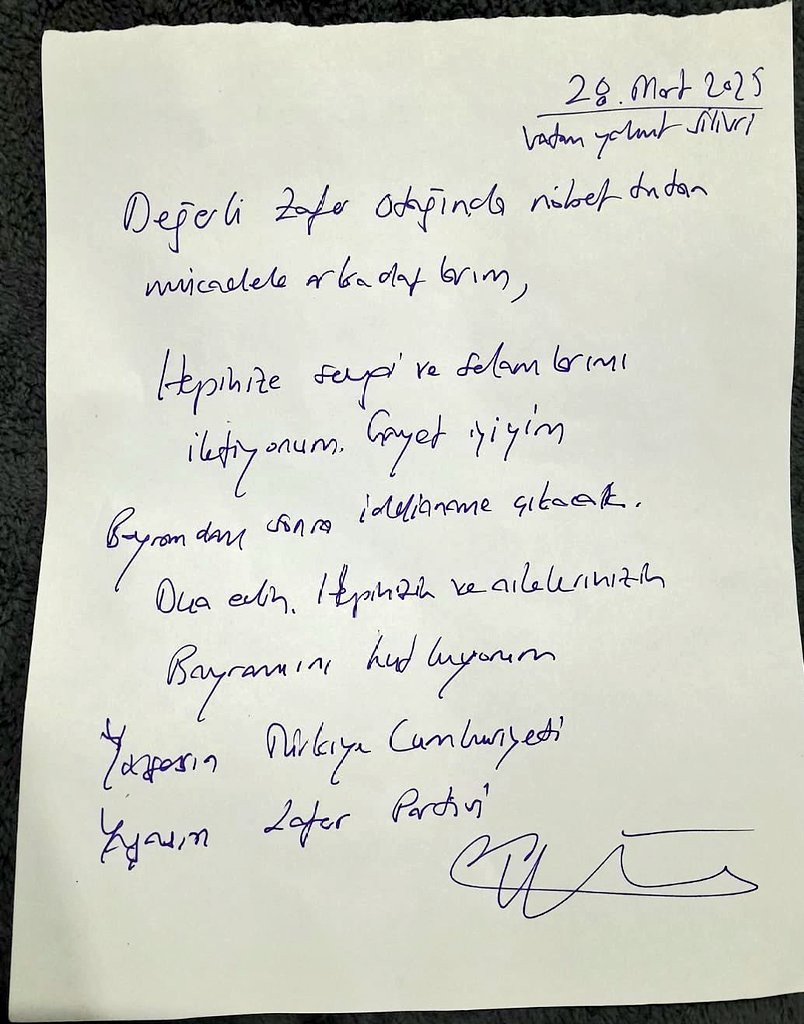 28. Mart 2025
Vatan yahut Silivri
Değerli Zafer Otağında nöbet tutan
mücadele arkadaşlarım,
Hepinize sevgi ve selamlarımı
iletiyorum. Gayet iyiyim
Bayramdan sonra iddianame çıkacak.
Dua edin. Hepinizin ve ailelerinizin
Bayramını kutluyorum
Yaşasın Türkiye Cumhuriyeti
Yaşasın Zafer Partisi